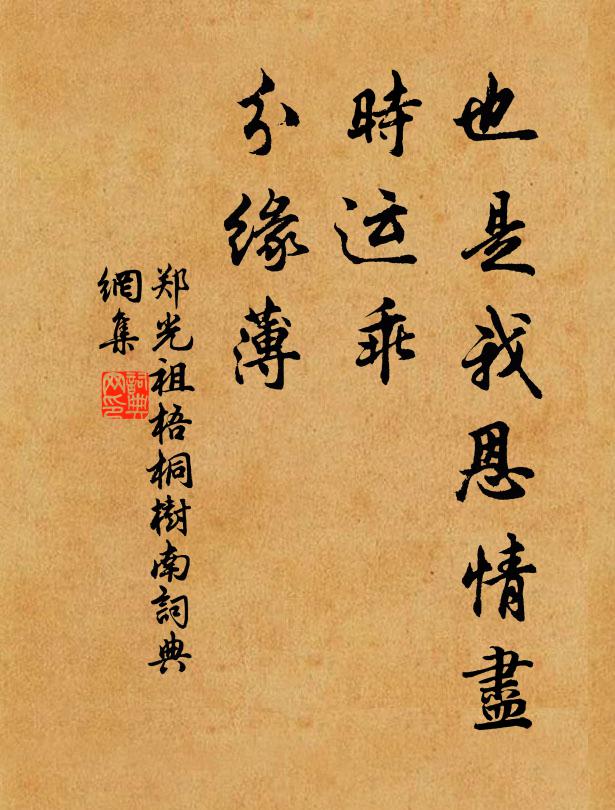 也是我恩情盡
時运乖
分緣薄
郑光祖梧桐樹南詞典
網集
詞典网印